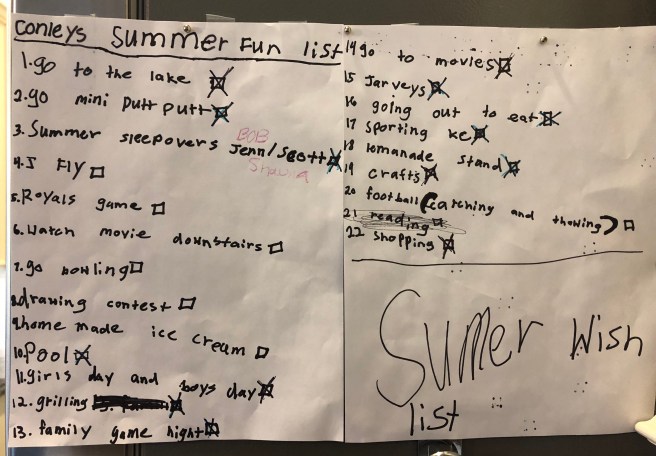 Conleys Summer Fun list
1. go to the lake
2. go mini putt putt
3. Summer sleepovers Jenn/Scott
BOB
Shawna
4. I Fly
5. Royals game
6. Watch movie downstairs
7. go bowling
8. drawing contest
9. home made ice cream
10. Pool
11. girls day and boys day
12. grilling
13. family game night
14 go to movies
15 Jarveys
16 going out to eat
17 sporting ke
18 lemanade stand
19 crafts
20 football (catching and thowing)
21 reading
22 shopping
Sumer Wish
list